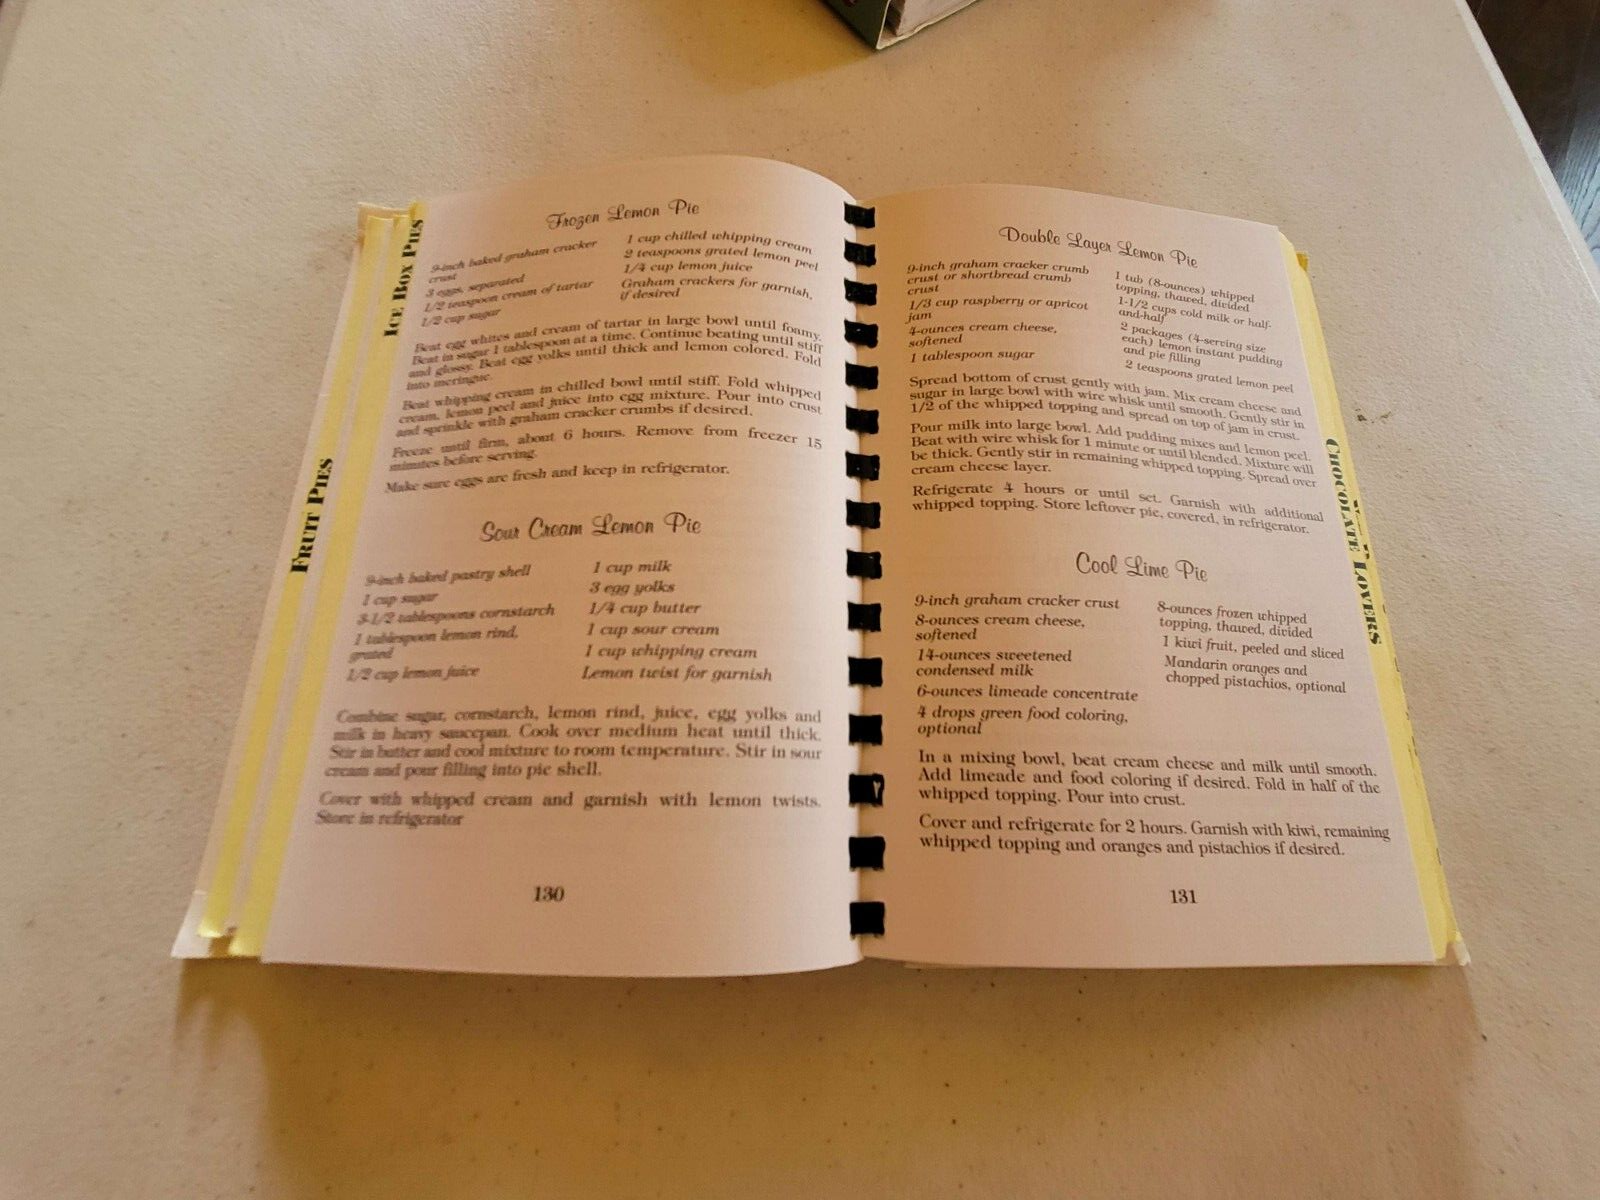 ICE BOX PIES
FRUIT PIES
Frozen Lemon Pie
9-inch baked graham cracker
crust
3 eggs, separated
1/2 teaspoon cream of tartar
1/2 cup sugar
1 cup chilled whipping cream
2 teaspoons grated lemon peel
1/4 cup lemon juice
Graham crackers for garnish,
if desired
Beat egg whites and cream of tartar in large bowl until foamy.
Beat in sugar 1 tablespoon at a time. Continue beating until stiff
and glossy. Beat egg yolks until thick and lemon colored. Fold
into meringue.
Beat whipping cream in chilled bowl until stiff. Fold whipped
cream, lemon peel and juice into egg mixture. Pour into crust
and sprinkle with graham cracker crumbs if desired.
Freeze until firm, about 6 hours. Remove from freezer 15
minutes before serving.
Make sure eggs are fresh and keep in refrigerator.
Sour Cream Lemon Pie
9-inch baked pastry shell
1 cup sugar
3-1/2 tablespoons cornstarch
1 tablespoon lemon rind,
grated
1/2 cup lemon juice
1 cup milk
3 egg yolks
1/4 cup butter
1 cup sour cream
1 cup whipping cream
Lemon twist for garnish
Combine sugar, cornstarch, lemon rind, juice, egg yolks and
milk in heavy saucepan. Cook over medium heat until thick.
Stir in butter and cool mixture to room temperature. Stir in sour
cream and pour filling into pie shell.
Cover with whipped cream and garnish with lemon twists.
Store in refrigerator
130
Double Layer Lemon Pie
9-inch graham cracker crumb
crust or shortbread crumb
crust
1/3 cup raspberry or apricot
jam
4-ounces cream cheese,
softened
1 tablespoon sugar
1 tub (8-ounces) whipped
topping, thawed, divided
1-1/2 cups cold milk or half-
and-half
2 packages (4-serving size
each) lemon instant pudding
and pie filling
2 teaspoons grated lemon peel
Spread bottom of crust gently with jam. Mix cream cheese and
sugar in large bowl with wire whisk until smooth. Gently stir in
1/2 of the whipped topping and spread on top of jam in crust.
Pour milk into large bowl. Add pudding mixes and lemon peel.
Beat with wire whisk for 1 minute or until blended. Mixture will
be thick. Gently stir in remaining whipped topping. Spread over
cream cheese layer.
Refrigerate 4 hours or until set. Garnish with additional
whipped topping. Store leftover pie, covered, in refrigerator.
Cool Lime Pie
9-inch graham cracker crust
8-ounces cream cheese,
softened
14-ounces sweetened
condensed milk
6-ounces limeade concentrate
4 drops green food coloring,
optional
8-ounces frozen whipped
topping, thawed, divided
1 kiwi fruit, peeled and sliced
Mandarin oranges and
chopped pistachios, optional
In a mixing bowl, beat cream cheese and milk until smooth.
Add limeade and food coloring if desired. Fold in half of the
whipped topping. Pour into crust.
Cover and refrigerate for 2 hours. Garnish with kiwi, remaining
whipped topping and oranges and pistachios if desired.
131
CHOCOLATE
LOVERS